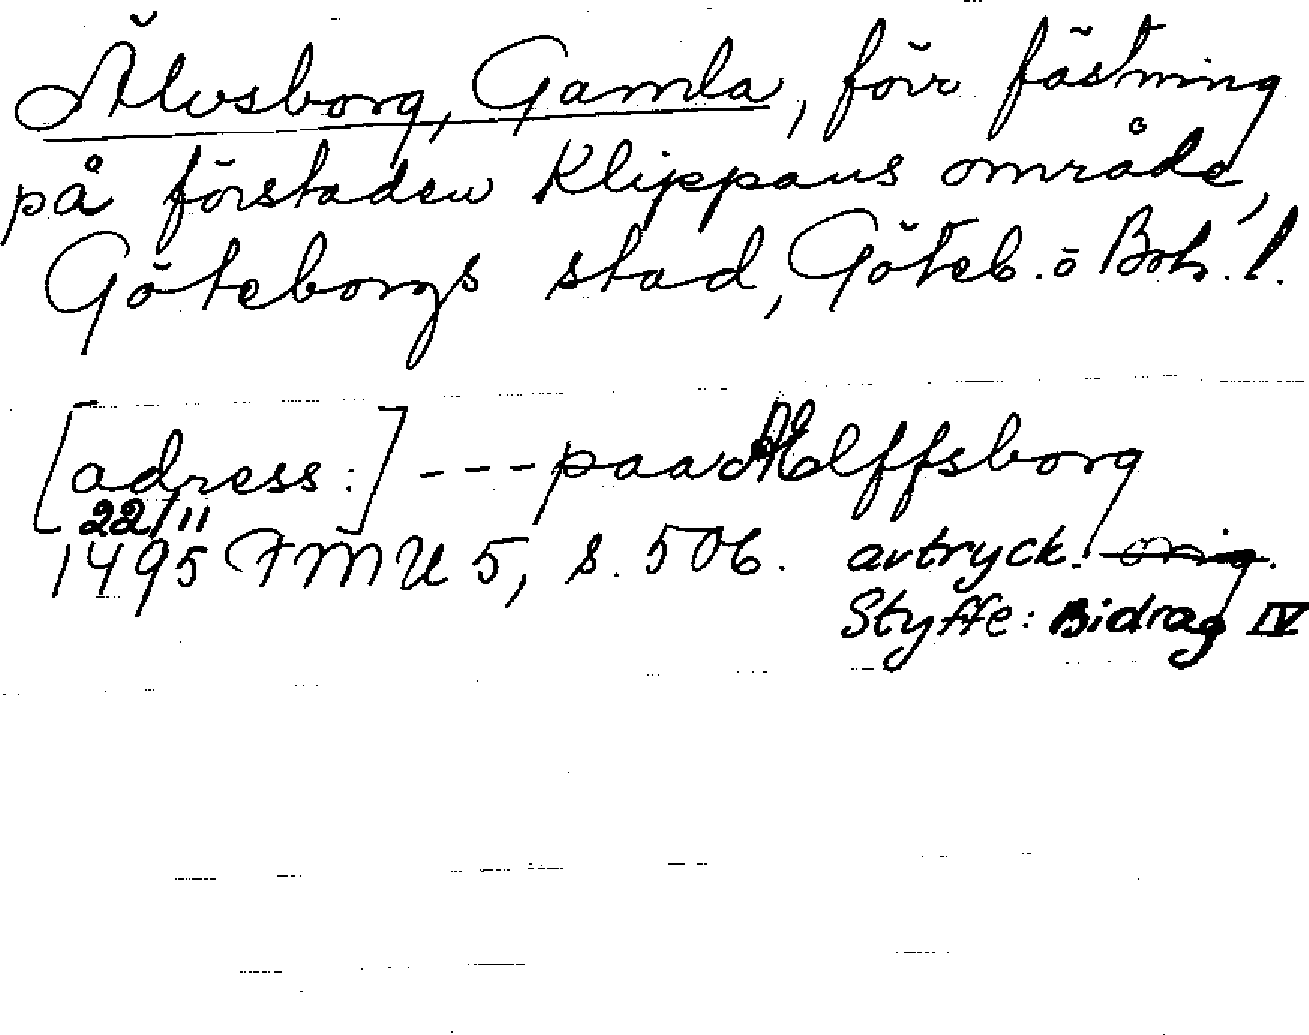 Älvsborg, Gamla, förr fästning
på förstaden Klippans område,
Göteborgs stad, Göteb. o Boh. l.
[adress:] --- paa Ælffsborg
22/11
1495 FMU 5, s. 506. avtryck. orig.
Styffe: Bidrag IV